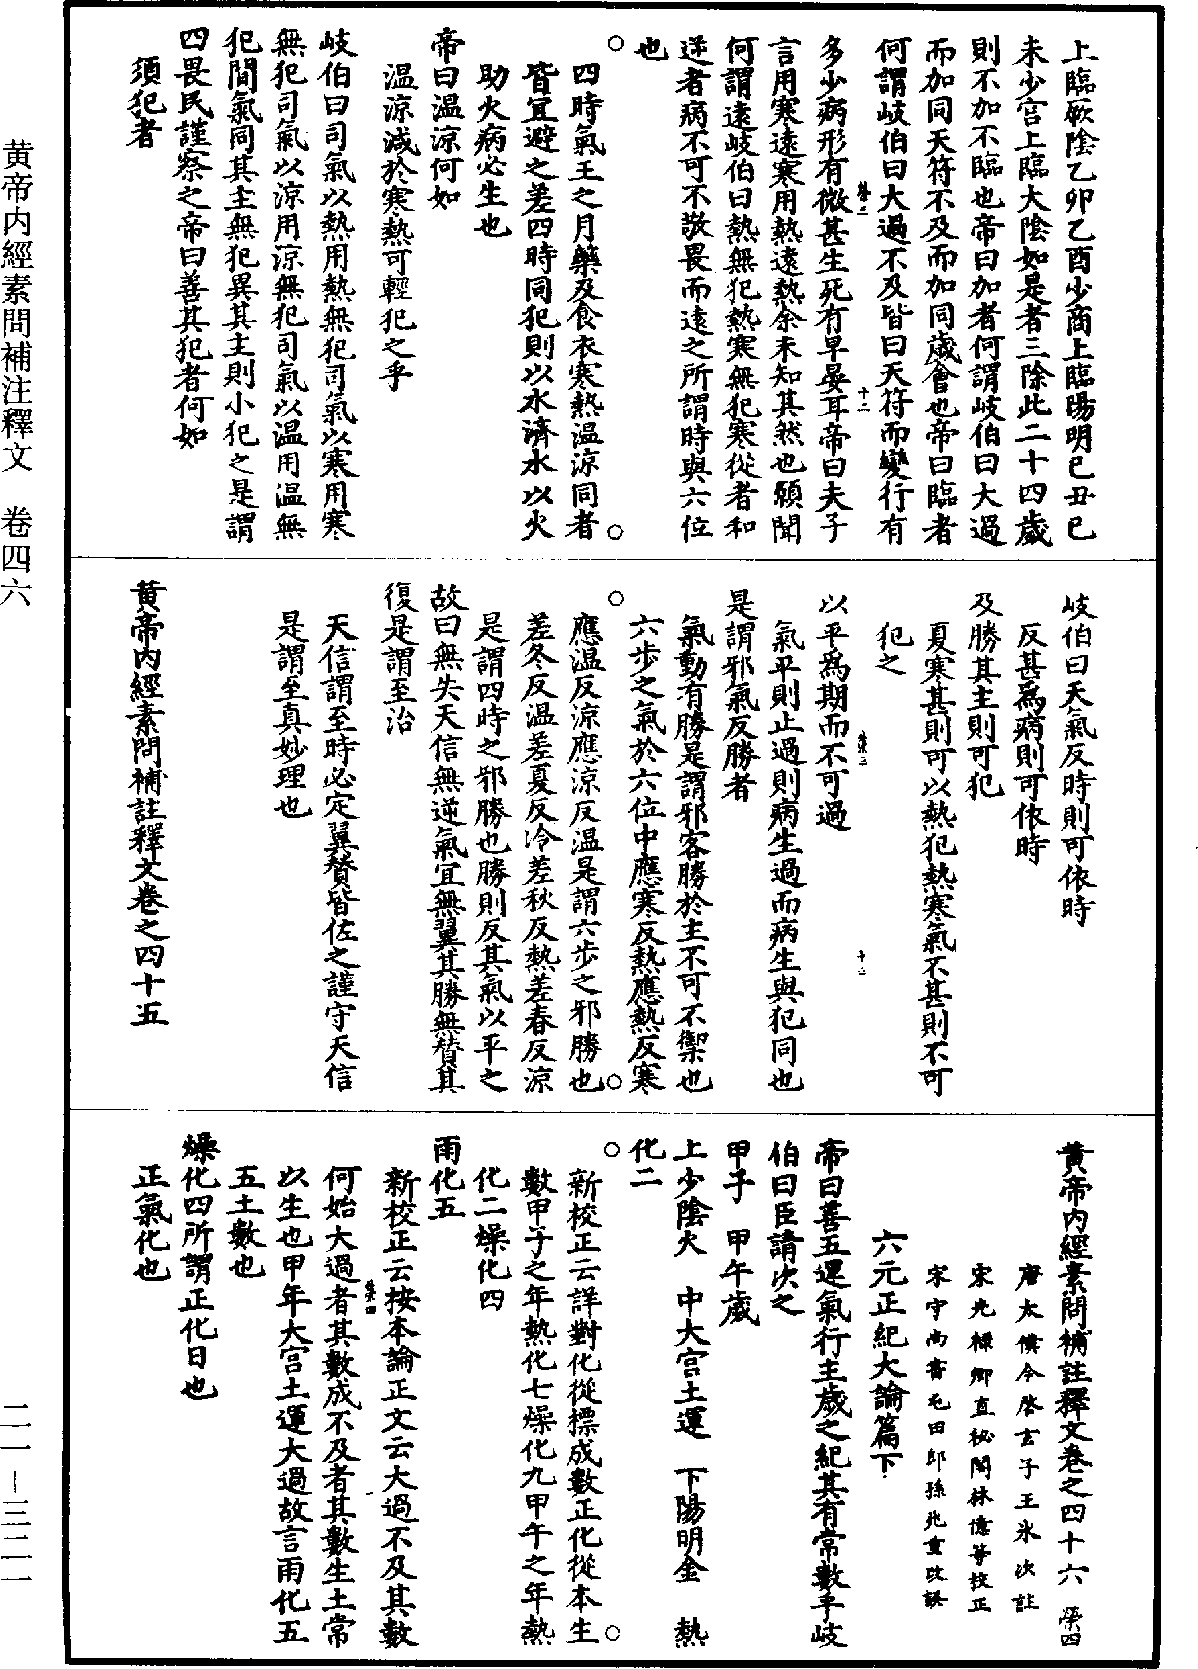 上臨厥陰乙卯乙酉少商上臨陽明己丑己
未少宮上臨大陰如是者三除此二十四歲
則不加不臨也帝曰加者何謂岐伯曰大過
而加同天符不及而加同歲會也帝曰臨者
何謂岐伯曰大過不及皆曰天符而變行有
多少病形有微甚生死有早晏耳帝曰夫子
言用寒遠寒用熱遠熱余未知其然也願聞
何謂遠岐伯曰熱無犯熱寒無犯寒從者和
逆者病不可不敬畏而遠之所謂時與六位
也
四時氣王之月藥及食衣寒熱温涼同者
皆宜避之差四時同犯則以水濟水以火
助火病必生也
帝曰温涼何如
温涼減於寒熱可輕犯之乎
岐伯曰司氣以熱用熱無犯司氣以寒用寒
無犯司氣以涼用涼無犯司氣以温用温無
犯間氣同其主無犯異其主則小犯之是謂
四畏民謹察之帝曰善其犯者何如
須犯者
岐伯曰天氣反時則可依時
反甚為病則可依時
及勝其主則可犯
夏寒甚則可以熱犯熱寒氣不甚則不可
犯之
以平為期而不可過
氣平則止過則病生過而病生與犯同也
是謂邪氣反勝者
氣動有勝是謂邪客勝於主不可不禦也
六步之氣於六位中應寒反熱應熱反寒
應温反涼應涼反温是謂六步之邪勝也
差冬反温差夏反冷差秋反熱差春反涼
是謂四時之邪勝也勝則反其氣以平之
故曰無失天信無逆氣宜無翼其勝無贊其
復是謂至治
天信謂至時必定翼贊皆佐之謹守天信
是謂至真妙理也
黃帝內經素問補註釋文卷之四十五
黃帝內經素問補註釋文卷之四十六 榮四
唐太僕令啓玄子王氷次註
宋光祿卿直秘閣林億等校正
宋守尚書屯田郎孫兆重改誤
六元正紀大論篇下
帝曰善五運氣行主歲之紀其有常數乎岐
伯曰臣請次之
甲子 甲午歲
上少陰火 中大宮土運 下陽明金 熱
化二
新校正云詳對化從標成數正化從本生
數甲子之年熱化七燥化九甲午之年熱
化二燥化四
雨化五
新校正云按本論正文云大過不及其數
何始大過者其數成不及者其數生土常
以生也甲年大宮土運大過故言雨化五
五土數也
燥化四所謂正化日也
正氣化也
黄帝内經素問補注釋文 卷四六
二一－三二一